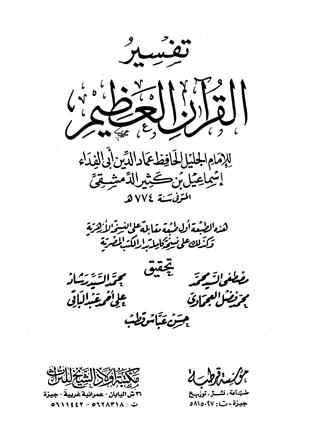 تفسير
القرآن العظيم
للإمام الجليل الحافظ عماد الدين أبي الفداء
إسماعيل بن كثير الدمشقي
المتوفى سنة ٧٧٤ هـ
هذه الطبعة أول طبعة مقابلة على النسخة الأزهرية
وكذلك على نسخة كاملة بدار الكتب المصرية
تحقيق
مصطفى السيد محمد محمد السيد رشاد
محمد فضل العجماوي علي أحمد عبد الباقي
حسن عباس قطب
مؤسسة قرطبة
طباعة . نشر . توزيع
جيزة - ت : ٥٨١٥٠٢٧
مكتبة أولاد الشيخ للتراث
٣٦ ش اليابان - عمرانية غربية - جيزة
ت : ٥٦٢٨٣١٨ - ٥٦١١٤٤٢